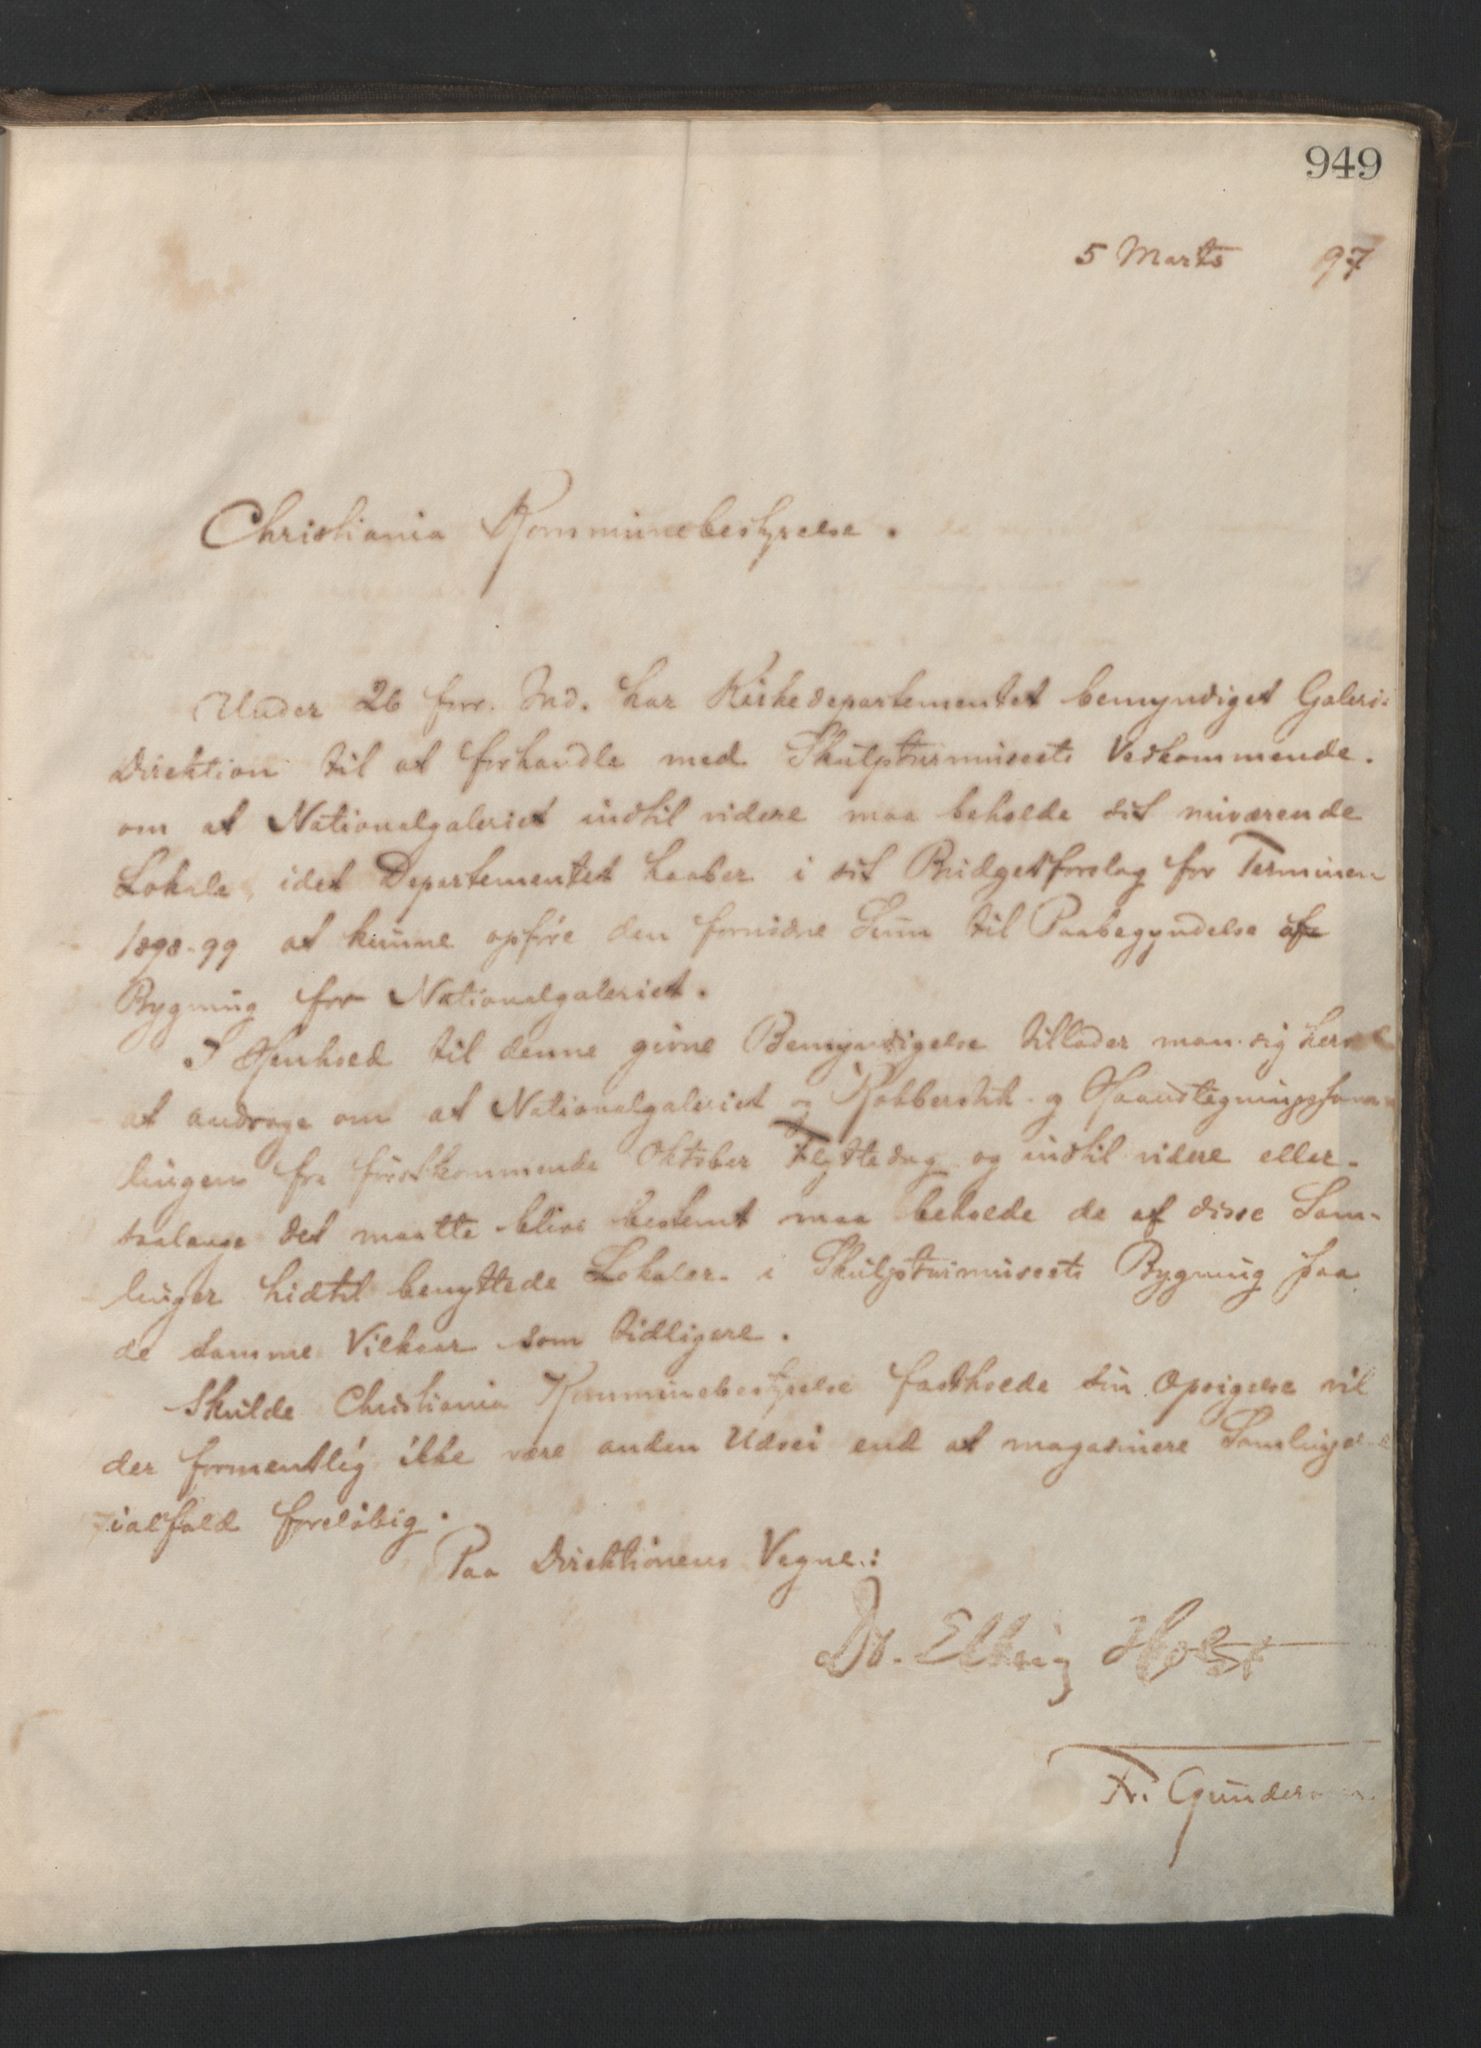 949
5 Marts 97
Christiania Kommunebestyrelse.
Under 26 forr. Md. har Kirkedepartementet bemyndiget Galeri-
direktion til at forhandle med Skulpturmuseets Vedkommende.
om at Nationalgaleriet indtil videre maa beholde sit nuværende
Lokale, idet Departementet haaber i sit Budgetforslag for Terminen
1898-99 at kunne opføre den fornødne Sum til Paabegyndelse af
Bygning for Nationalgaleriet.
I Henhold til denne givne Bemyndigelse tillader man sig herved
at androge om at Nationalgaleriet og Kobberstik- og Haandtegningssam-
lingen fra førstkommende Oktober Flyttedag og indtil videre eller
saalænge det maatte blive bestemt maa beholde de af disse Sam-
linger hidtil benyttede Lokaler i Skulpturmuseets Bygning paa
de samme Vilkaar som tidligere.
Skulde Christiania Kommunebestyrelse fastholde sin Opsigelse vil
der formentlig ikke være anden Udvei end at magasinere Samlingerne
ialfald foreløbig.
Paa Direktionens Vegne:
Dr. Elling Holst
Fr. Gundersen.